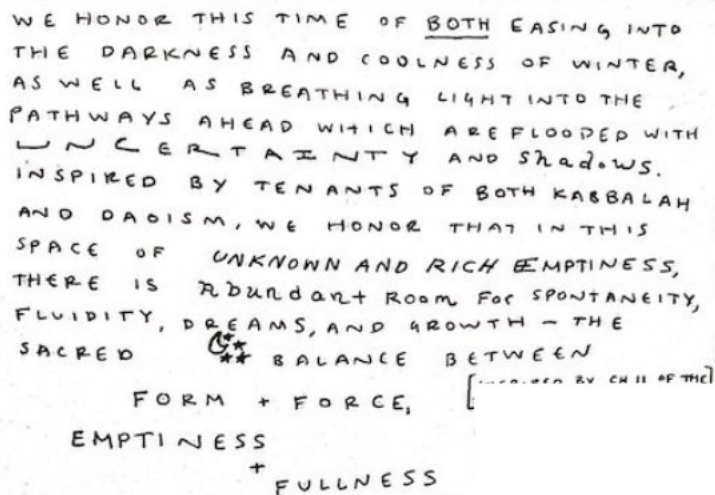 WE HONOR THIS TIME OF BOTH EASING INTO
THE DARKNESS AND COOLNESS OF WINTER,
AS WELL AS BREATHING LIGHT INTO THE
PATHWAYS AHEAD WHICH ARE FLOODED WITH
UNCERTAINTY AND Shadows.
INSPIRED BY TENANTS OF BOTH KABBALAH
AND DAOISM, WE HONOR THAT IN THIS
SPACE OF UNKNOWN AND RICH EMPTINESS,
THERE IS Abundant Room For SPONTANEITY,
FLUIDITY, DREAMS, AND GROWTH - THE
SACRED BALANCE BETWEEN
FORM + FORCE,
[BY CH 11 OF THE]
EMPTINESS
+
FULLNESS